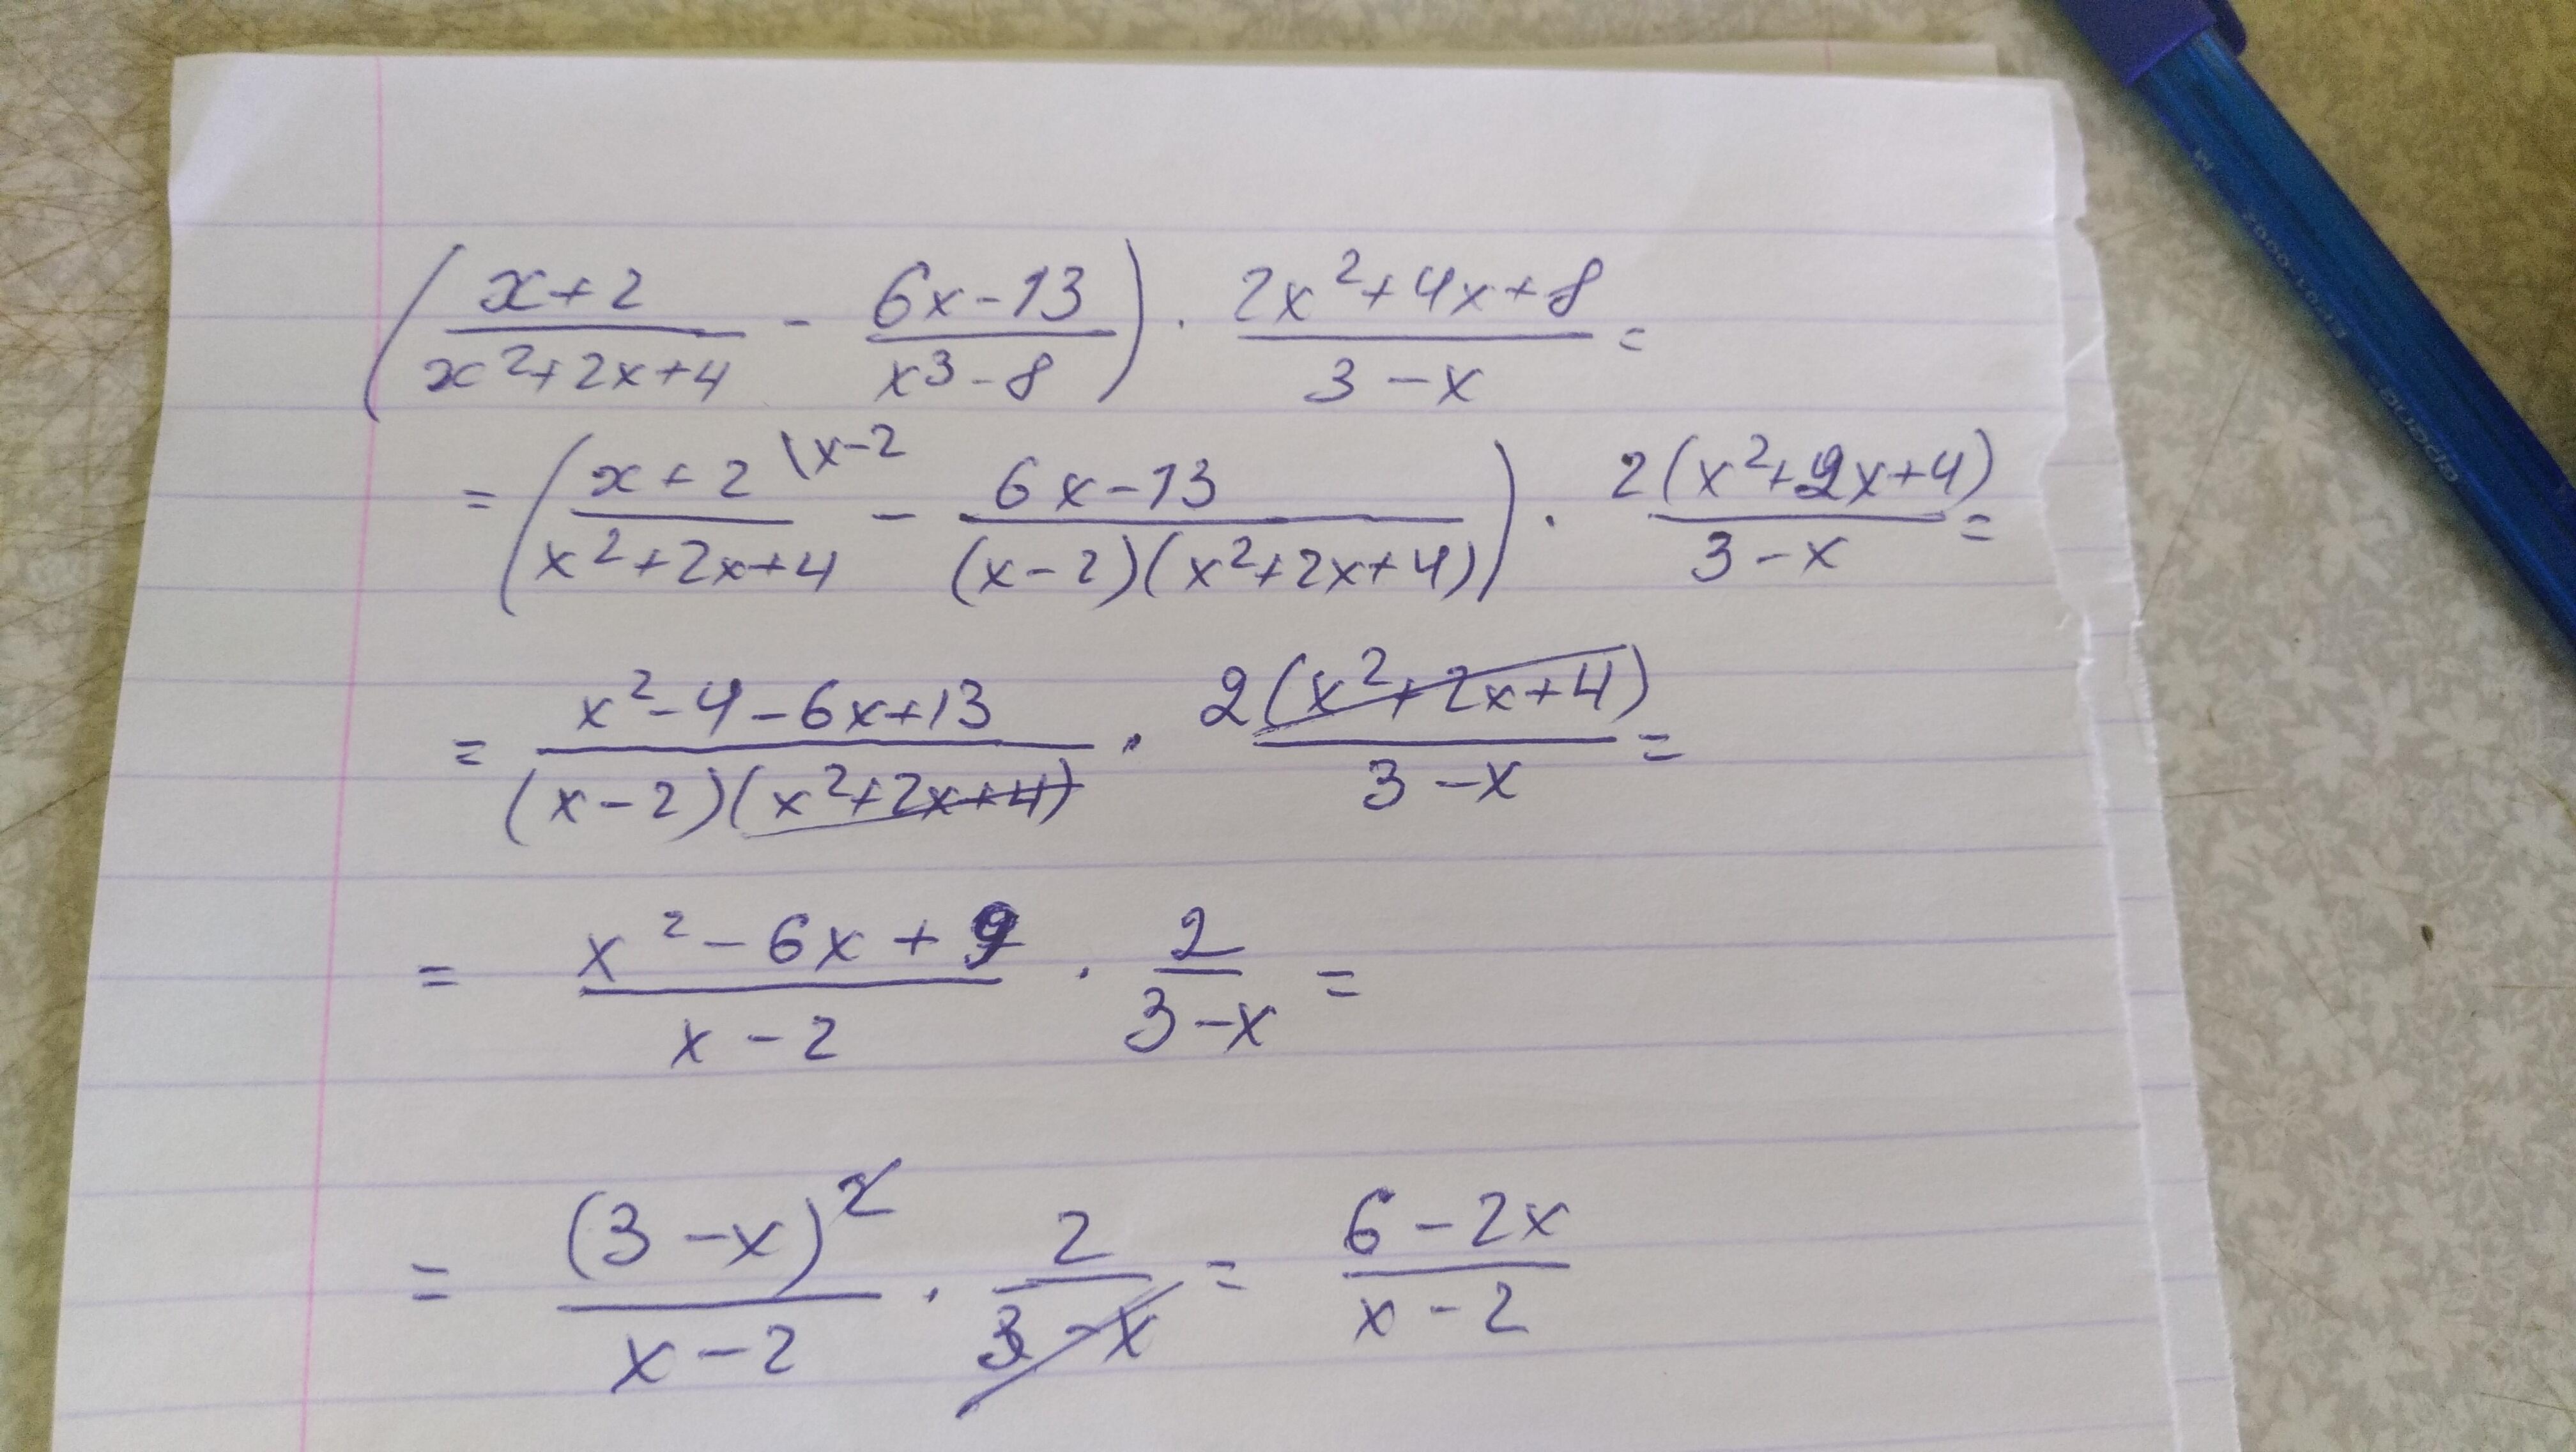 ( (x+2)/(x²+2x+4) - (6x-13)/(x³-8) ) · (2x²+4x+8)/(3-x) =
= ( (x+2)/(x²+2x+4) \x-2 - (6x-13)/((x-2)(x²+2x+4)) ) · 2(x²+2x+4)/(3-x) =
= (x²-4-6x+13)/((x-2)(x²+2x+4)) · 2(x²+2x+4)/(3-x) =
= (x²-6x+9)/(x-2) · 2/(3-x) =
= (3-x)²/(x-2) · 2/(3-x) = (6-2x)/(x-2)